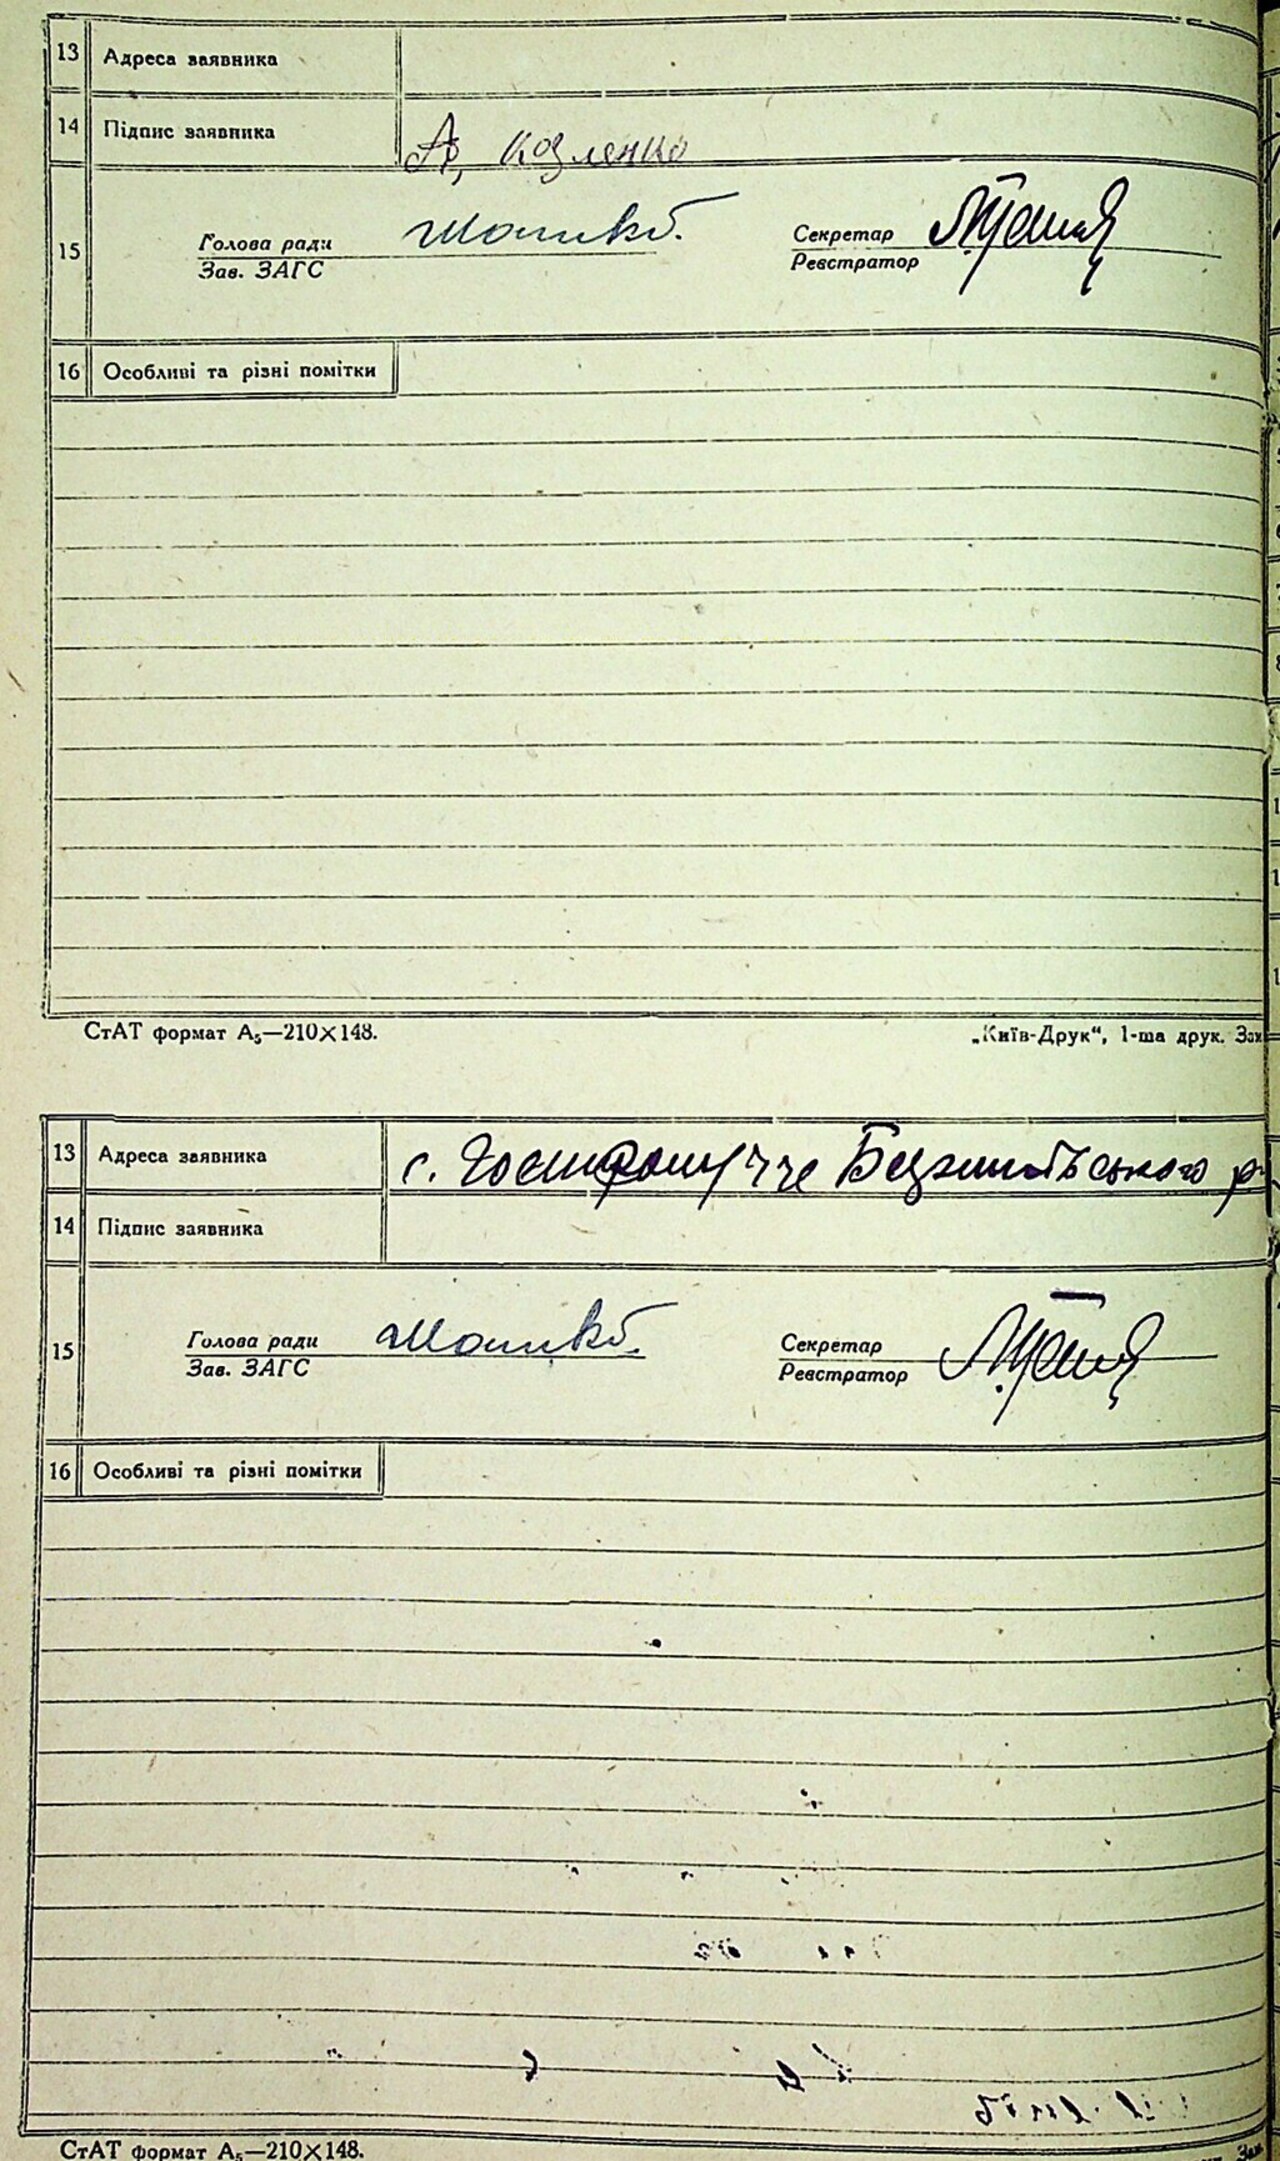 13 Адреса заявника
14 Підпис заявника А. Козленко
15 Голова ради Секретар
Зав. ЗАГС Реєстратор
16 Особливі та різні помітки
СтАТ формат А₅—210×148. „Київ-Друк“, 1-ша друк. Зам
13 Адреса заявника с.
14 Підпис заявника
15 Голова ради Секретар
Зав. ЗАГС Реєстратор
16 Особливі та різні помітки
СтАТ формат А₅—210×148. Зам